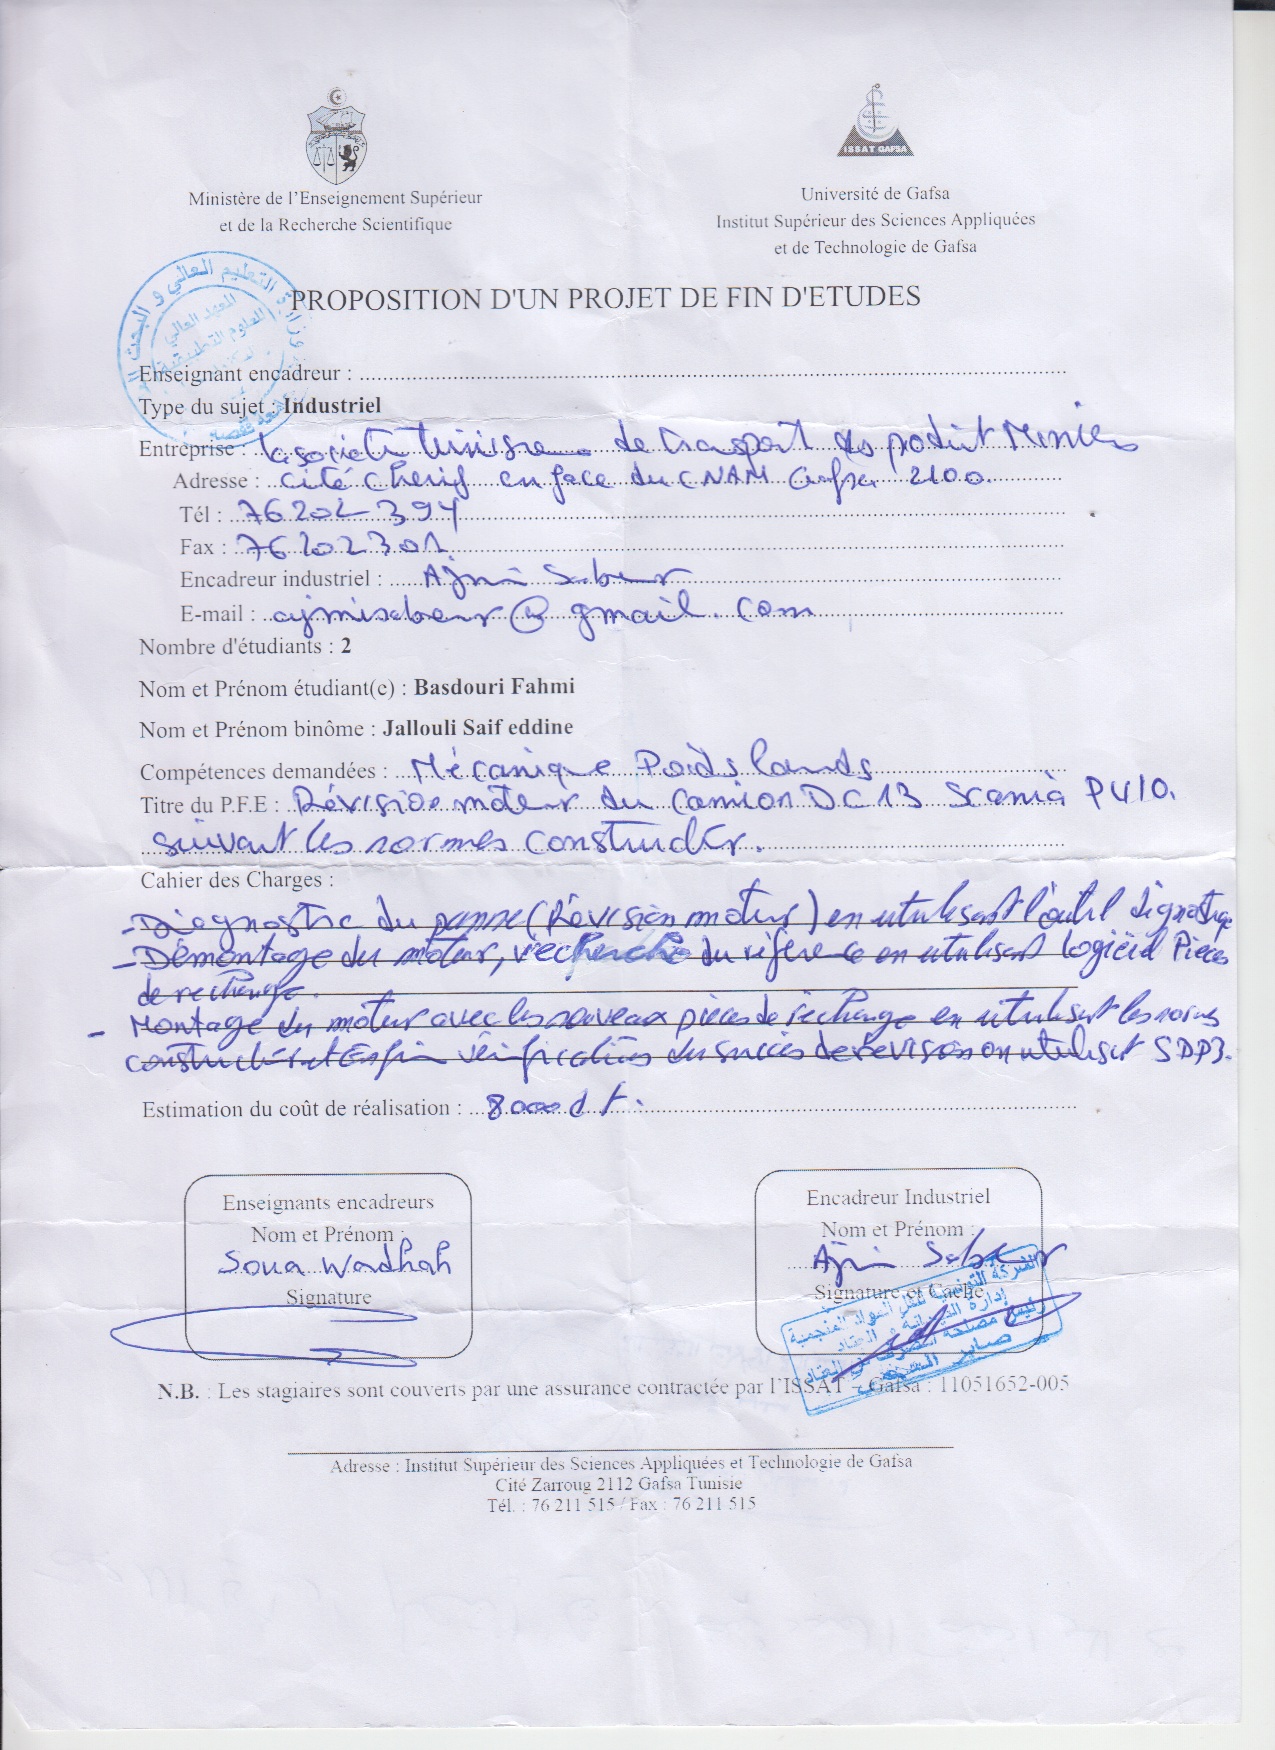 ISSAT GAFSA
Ministère de l'Enseignement Supérieur
et de la Recherche Scientifique
Université de Gafsa
Institut Supérieur des Sciences Appliquées
et de Technologie de Gafsa
PROPOSITION D'UN PROJET DE FIN D'ETUDES
Enseignant encadreur :
Type du sujet : Industriel
Entreprise : la société tunisienne de transport des produit Miniers
Adresse : cité cherif en face du CNAM Gafsa 2100.
Tél : 76 202 394
Fax : 76 202 301
Encadreur industriel : Ajmi Sabeur
E-mail : ajmisabeur@gmail.com
Nombre d'étudiants : 2
Nom et Prénom étudiant(e) : Basdouri Fahmi
Nom et Prénom binôme : Jallouli Saif eddine
Compétences demandées : Mécanique Poids lourds
Titre du P.F.E : Révision moteur du camion DC13 Scania P410.
suivant les normes constructeur.
Cahier des Charges :
- Diagnostic du panne (Révision moteur) en utulisant l'outil
- Démontage du moteur, recherche du référence en utulisant logiciel Pièces
de rechange.
- Montage du moteur avec les nouveaux pièces de rechange en utulisant les normes
constructeur et Enfin vérification du succès de revison en utulisat SDP3.
Estimation du coût de réalisation : 8000 dt.
Enseignants encadreurs
Nom et Prénom :
Soua Wadhah
Signature
Encadreur Industriel
Nom et Prénom :
Ajmi Sabeur
Signature et Cache
الشركة التونسية لنقل المواد المنجمية
N.B. : Les stagiaires sont couverts par une assurance contractée par l'ISSAT - Gafsa : 11051652-005
Adresse : Institut Supérieur des Sciences Appliquées et Technologie de Gafsa
Cité Zarroug 2112 Gafsa Tunisie
Tél. : 76 211 515 / Fax : 76 211 515